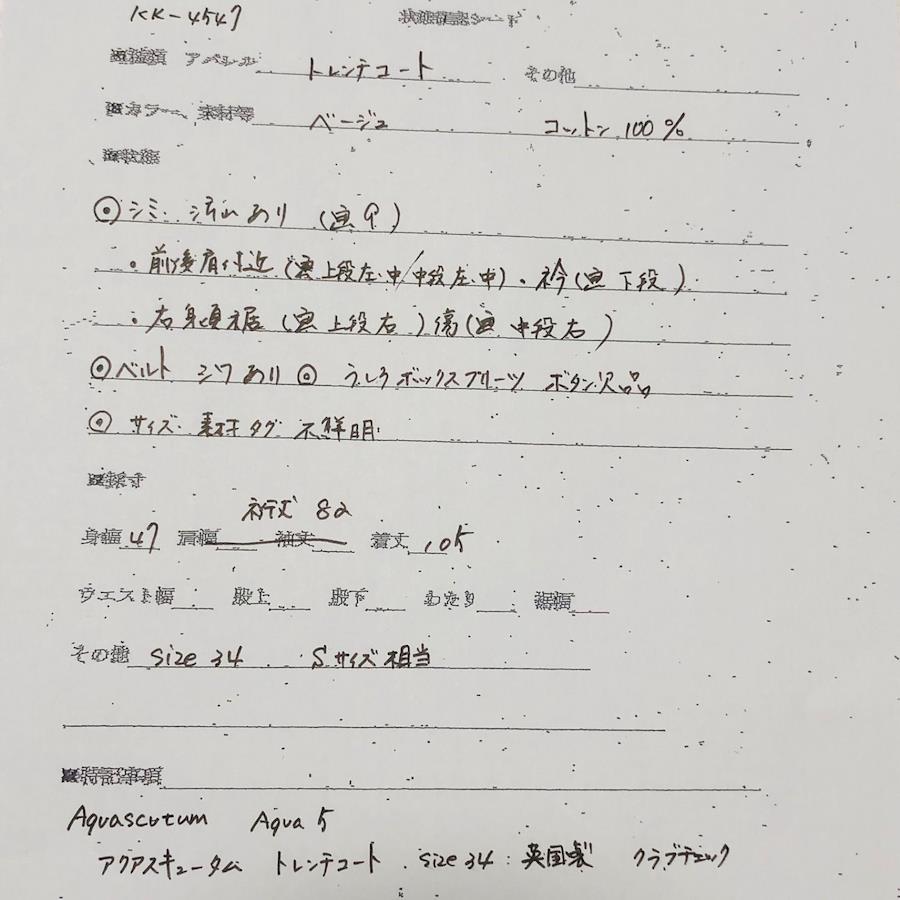 KK-4547 状態確認シート
■種類 アパレル トレンチコート その他
■カラー、素材等 ベージュ コットン 100%
■状態
◎シミ・汚れあり (画9)
・前後肩付近(画上段左・中/中段左・中)・衿(画下段)
・右身頃裾(画上段右)傷(画中段右)
◎ベルト シワあり ◎うしろボックスプリーツ ボタン欠品
◎サイズ・素材タグ 不鮮明
■採寸
裄丈 82
身幅 47 肩幅 袖丈 着丈 105
ウエスト幅 股上 股下 わたり 裾幅
その他 size 34 Sサイズ相当
■特記事項
Aquascutum Aqua 5
アクアスキュータム トレンチコート . size 34 : 英国製 クラブチェック